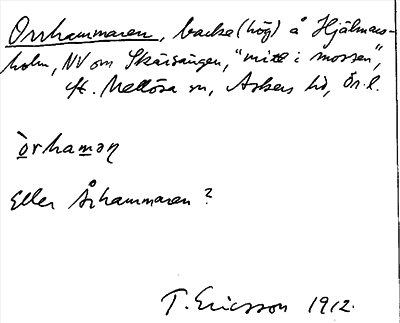 Orrhammaren, backe (hög) å Hjälmars-
holm, NV om Skärsängen, "mitt i mossen",
St. Mellösa sn, Askers hd, Ör. l.
òrhamaṇ
Eller Århammaren?
T. Ericsson 1912.